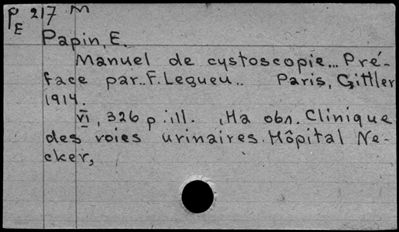 P 217 M
E
Papin, E.
Manuel de cystoscopie... Pré-
face par.. F. Legueu.. Paris, Gittler
1914.
VI, 326 p. ill. , На обл. Clinique
des voies urinaires. Hôpital Ne-
cker,